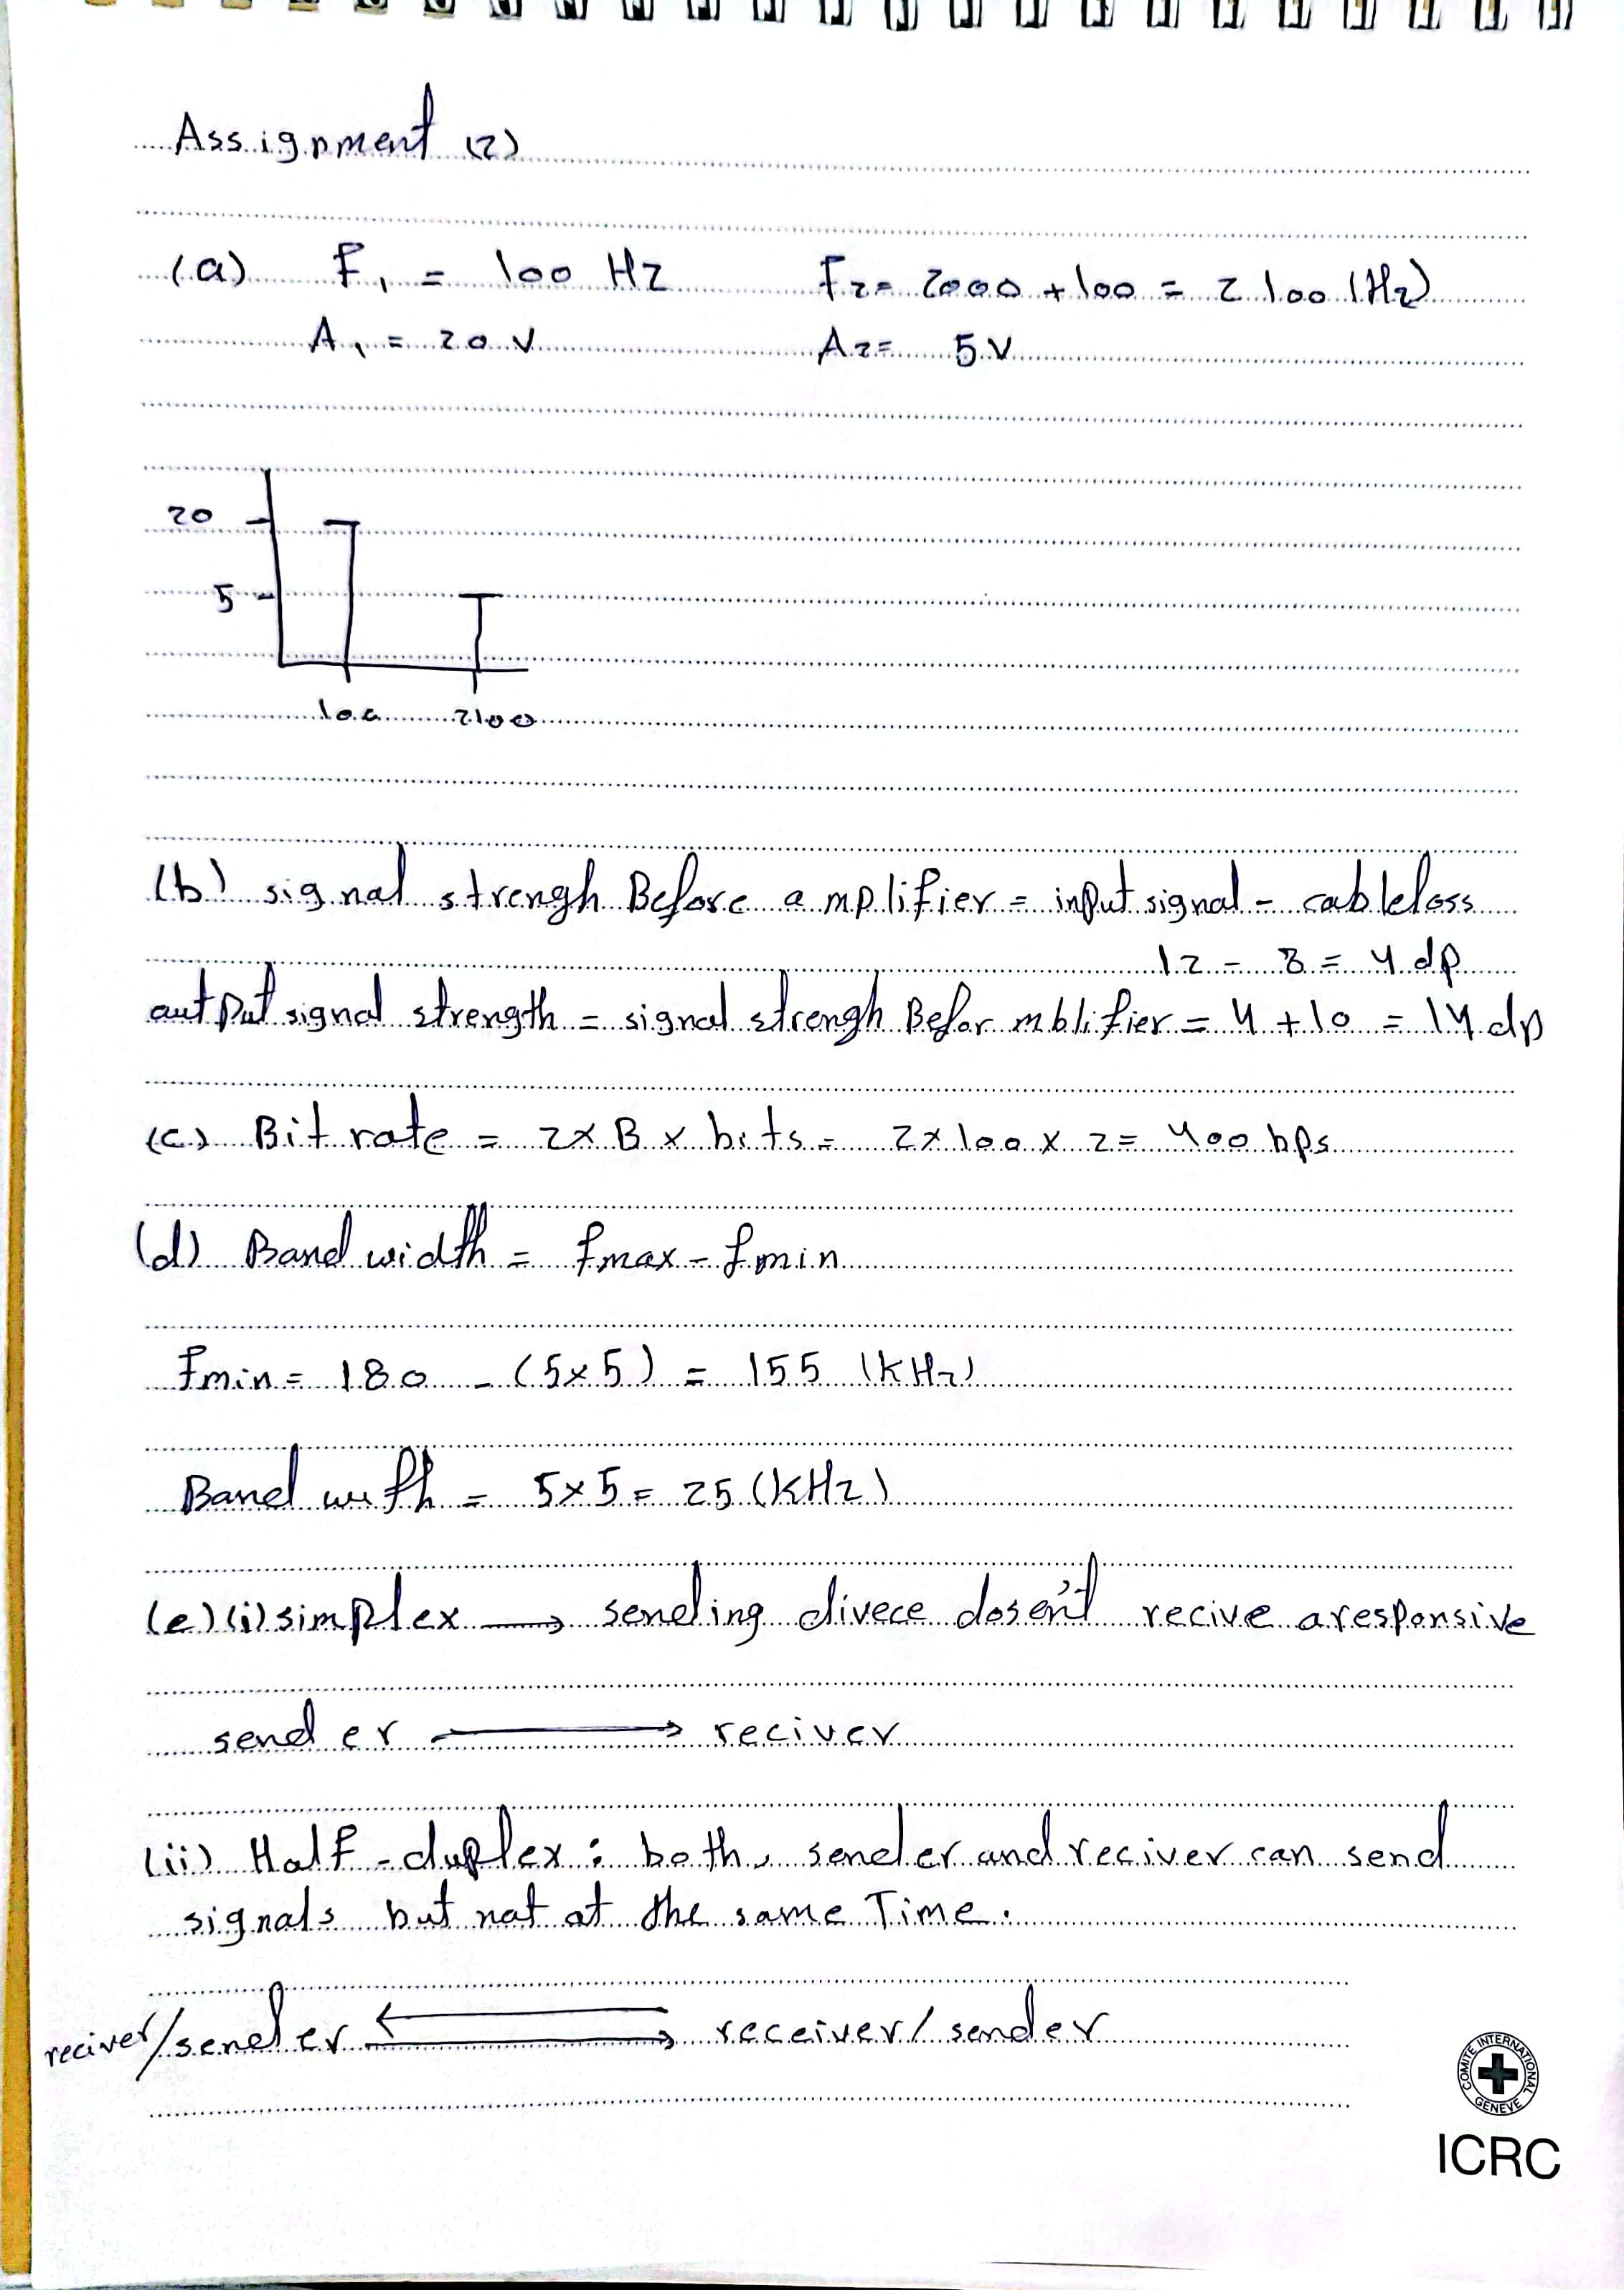 Assignment (2)
(a) F1 = 100 Hz F2 = 2000 + 100 = 2100 (Hz)
A1 = 20 V A2 = 5 V
20
5
100 2100
(b) signal strengh Before amplifier = input signal - cableloss
12 - 8 = 4 dp
output signal strength = signal strengh Befor mblifier = 4 + 10 = 14 dp
(c) Bit rate = 2 x B x bits = 2 x 100 x 2 = 400 bps
(d) Band width = fmax - fmin
Fmin = 180 - (5x5) = 155 (KHz)
Band with = 5x5 = 25 (KHz)
(e) (i) simplex → sending divece dosen't recive a responsive
sender → reciver
(ii) Half-duplex : both, sender and reciver can send
signals but not at the same Time.
reciver/sender ⇄ receiver/sender
COMITE INTERNATIONAL GENEVE
ICRC